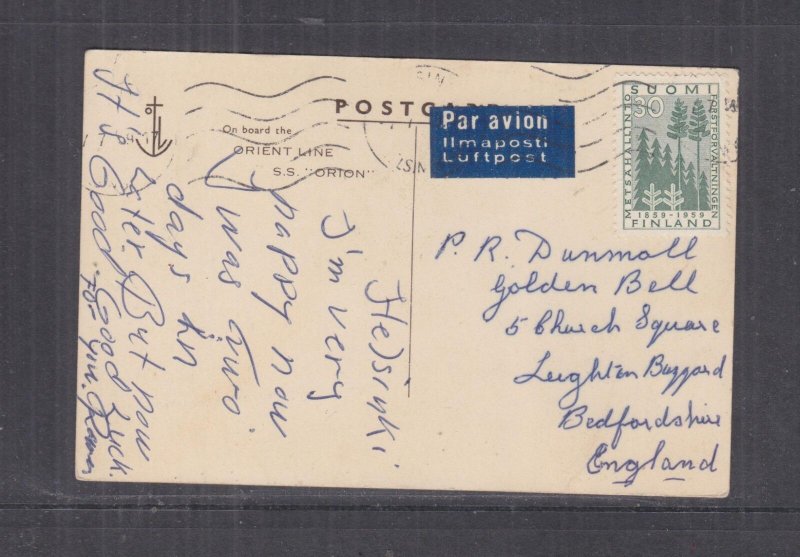 POSTCARD
On board the
ORIENT LINE
S.S. "ORION"
Par avion
Ilmaposti
Luftpost
SUOMI
30
METSÄHALLINTO
FORSTFÖRVALTNINGEN
1859-1959
FINLAND
P. R. Dunmall
Golden Bell
5 Church Square
Leighton Buzzard
Bedfordshire
England
Helsinki
I'm very
happy now
I was two
days in
later. But now
It is Good
Good luck.
for you.